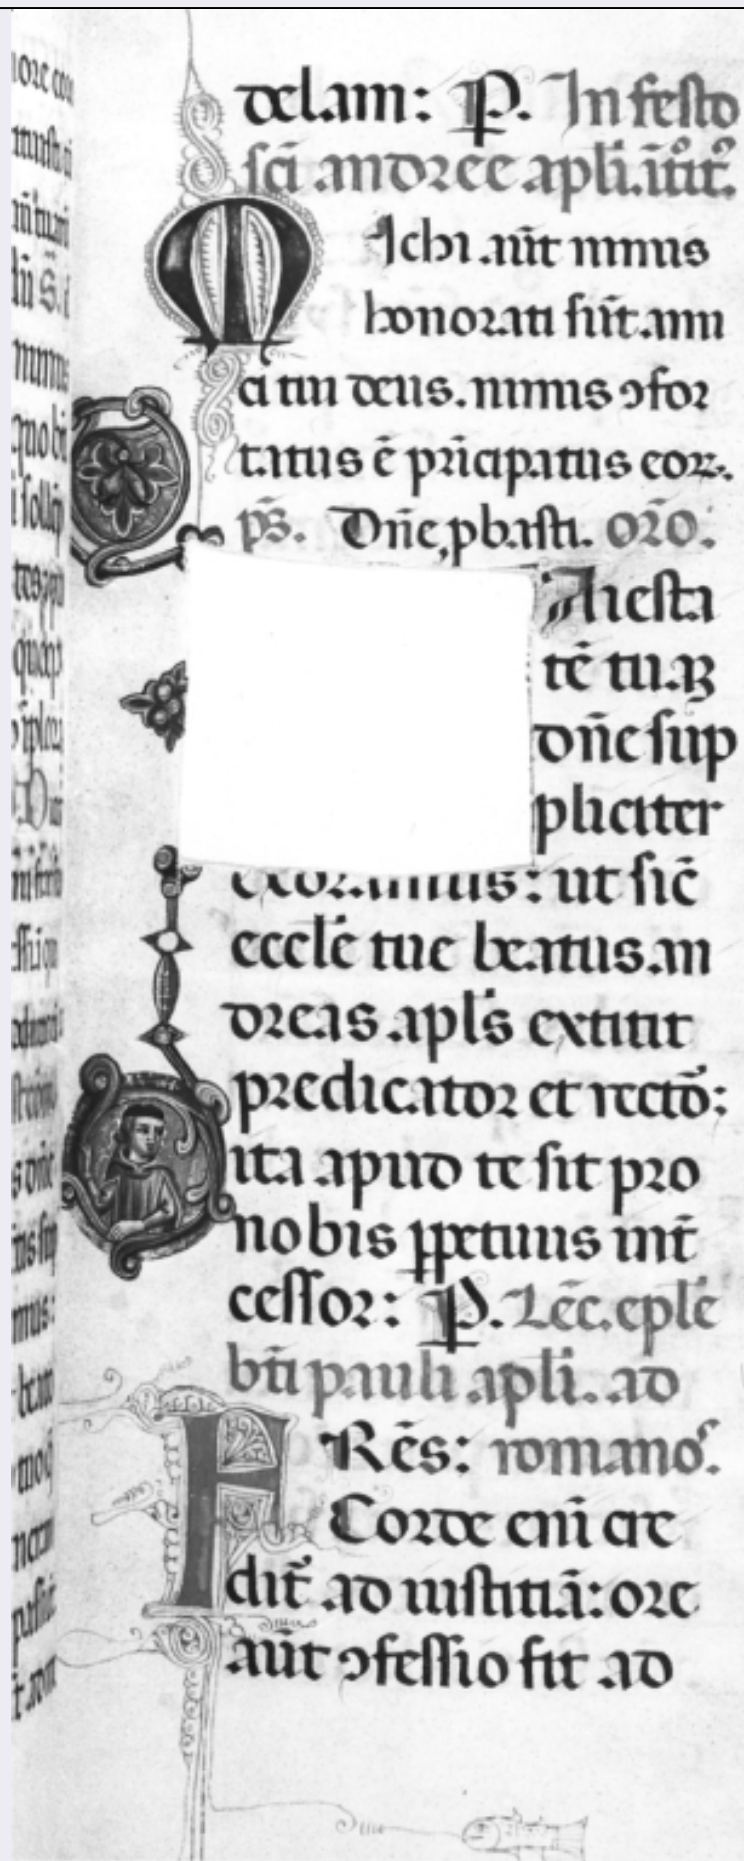 delam: P. In festo
sc̄i andree apl̄i. ītit᷒.
MIchi aūt nimis
honorati sūt ami
ci tui deus. nimis ↄfor
tatus ē pri̅cipatus eoꝝ.
ps̄. Dn̄e, ꝓbasti. or̄o.
Maiesta
tē tuaꝫ
dn̄e sup
pliciter
exoramus: ut sic̄
eccl̄e tue beatus an
dreas apl̄s extitit
predicator et rectō:
ita apud te sit pro
nobis ꝑpetuus int̄
cessor: P. Lēc. epl̄e
bt̄i pauli apl̄i. ad
FRēs: romanoꝭ.
Corde enī cre
dit̄ ad iustitiā: ore
aūt ↄfessio fit ad